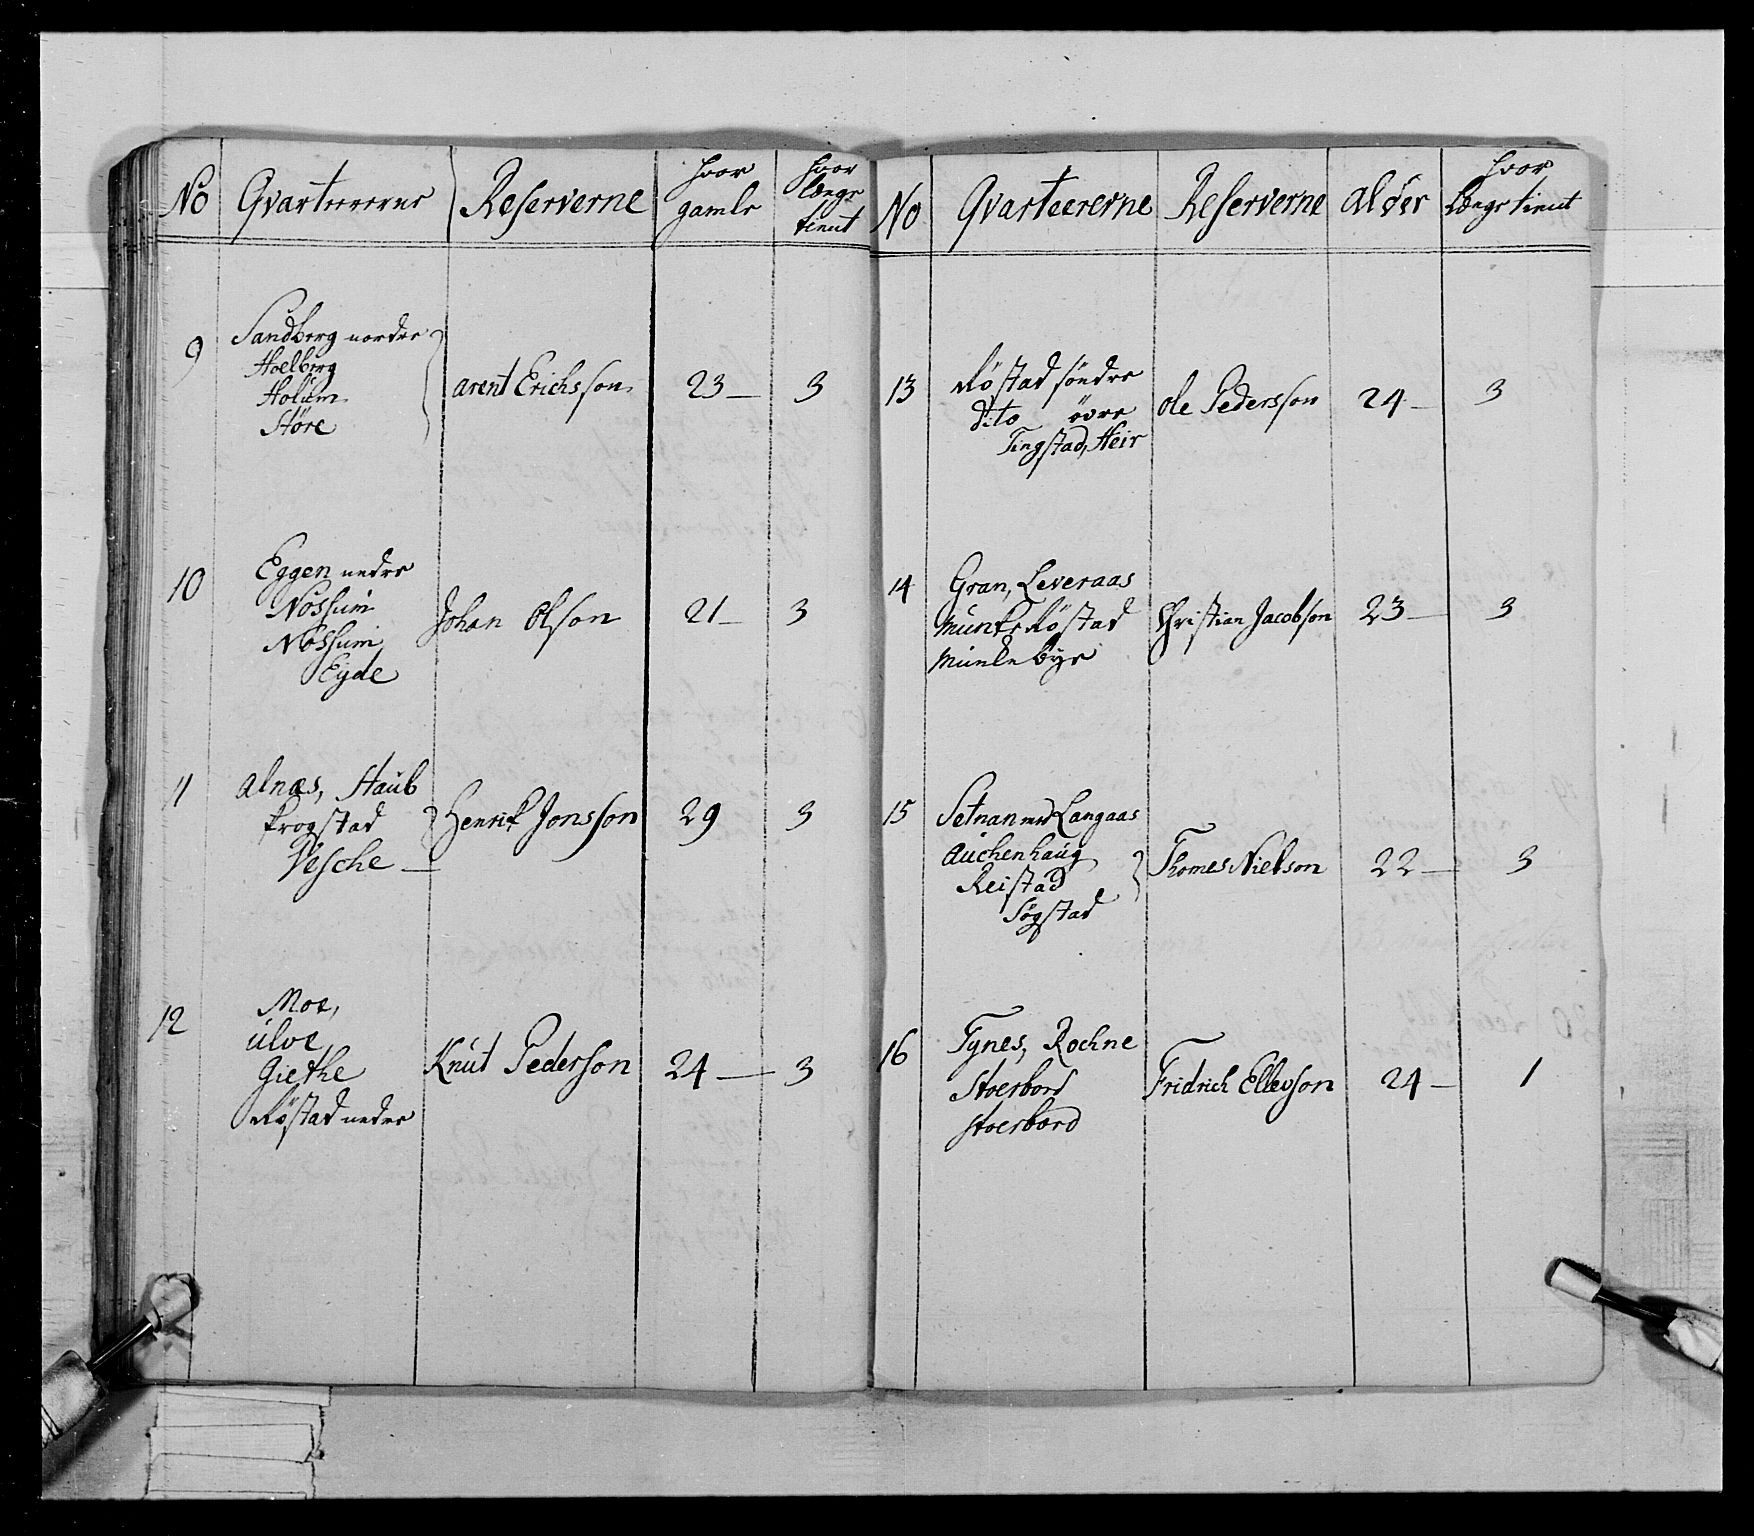 No Qvarteererne Reserverne hvor gamle hvor længe tient
9 Sandberg nordre
Hoelberg
Holum
Støre
Arent Erichsson 23 3
10 Eggen nedre
Nossum
Nossum
Eyde
Johan Olson 21 3
11 Alnæs, Staub
Frogstad
Vesche
Henrik Jonsson 29 3
12 Moe,
Ulve
Giethe
Røstad nedre
Knut Pederson 24 3
No Qvarteererne Reserverne Alder hvor længe tient
13 Røstad söndre
dito övre
Tingstad, Heir
Ole Pedersson 24 3
14 Gran, Leveraas
Munke Røstad
Munkebye
Christian Jacobson 23 3
15 Setnan med Langaas
Auchenhaug
Reistad
Søgstad
Thomes Nielson 22 3
16 Tynes, Rochne
Stoerbord
Stoerbord
Fridrich Ellevson 24 1